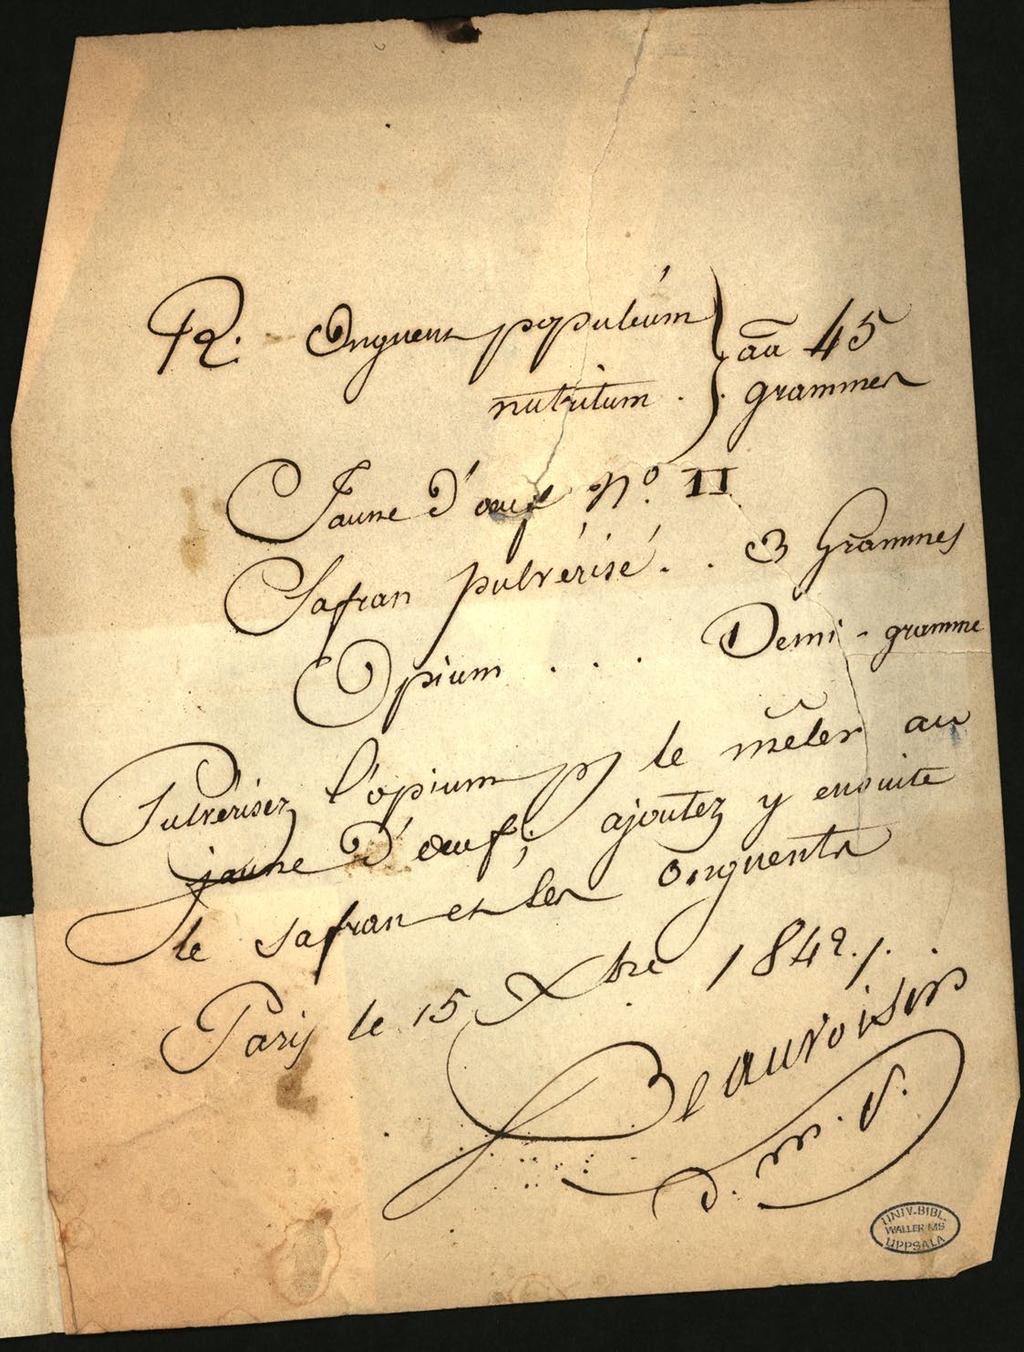 R. Onguent populéum } aā 45
nutritum . } grammes
Jaune d'œuf N° II
Safran pulvérisé . . 3 Grammes
Opium . . . Demi-gramme
Pulvérisez l'opium pr le mêler au
jaune d'œuf; ajoutez y ensuite
le safran et les onguents
Paris le 15 Xbre 1842./.
Beauvoisin
d. m. p.
UNIV. BIBL.
WALLER MS
UPPSALA